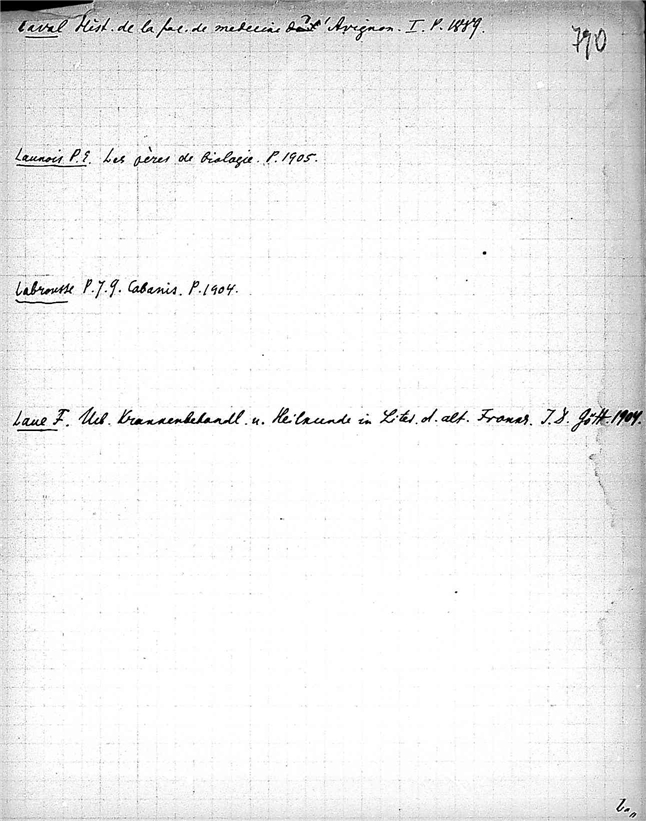 Laval Hist. de la fac. de medecine d'Avignon. I. P. 1889.
790
Launois P.E. Les pères de biologie. P. 1905.
Labrousse P.J.G. Cabanis. P. 1904.
Laue F. Ueb. Krankenbehandl. u. Heilkunde in Liter. d. alt. Frankr. I.D. Gött. 1904.